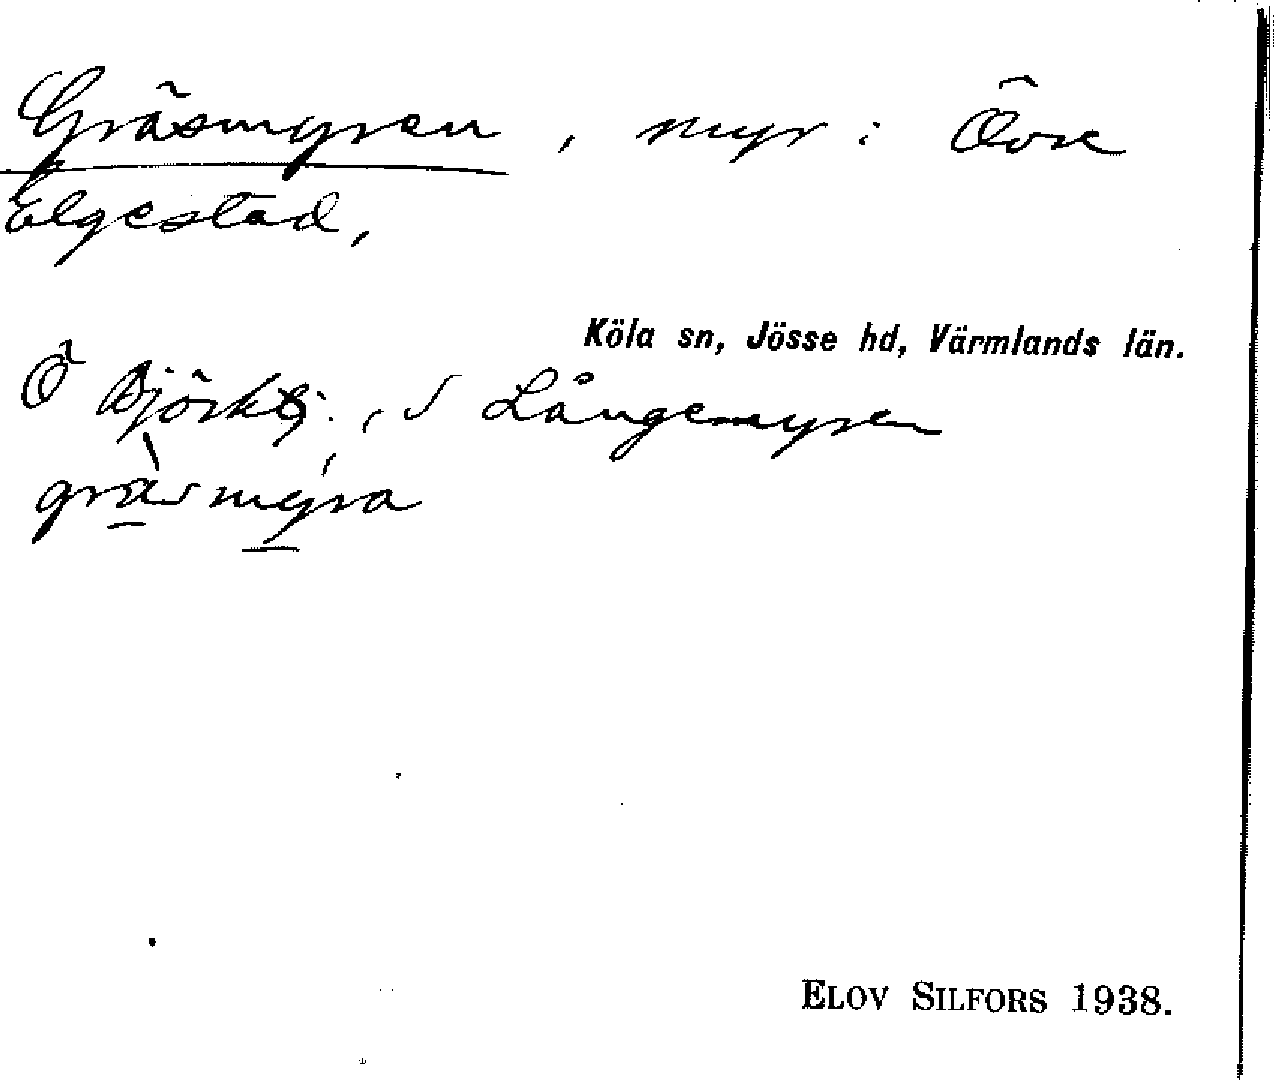 Gräsmyren, myr i Övre
Elgestad,
Köla sn, Jösse hd, Värmlands län.
Ö Björktj., S Långemyren
gräsmyra
ELOV SILFORS 1938.